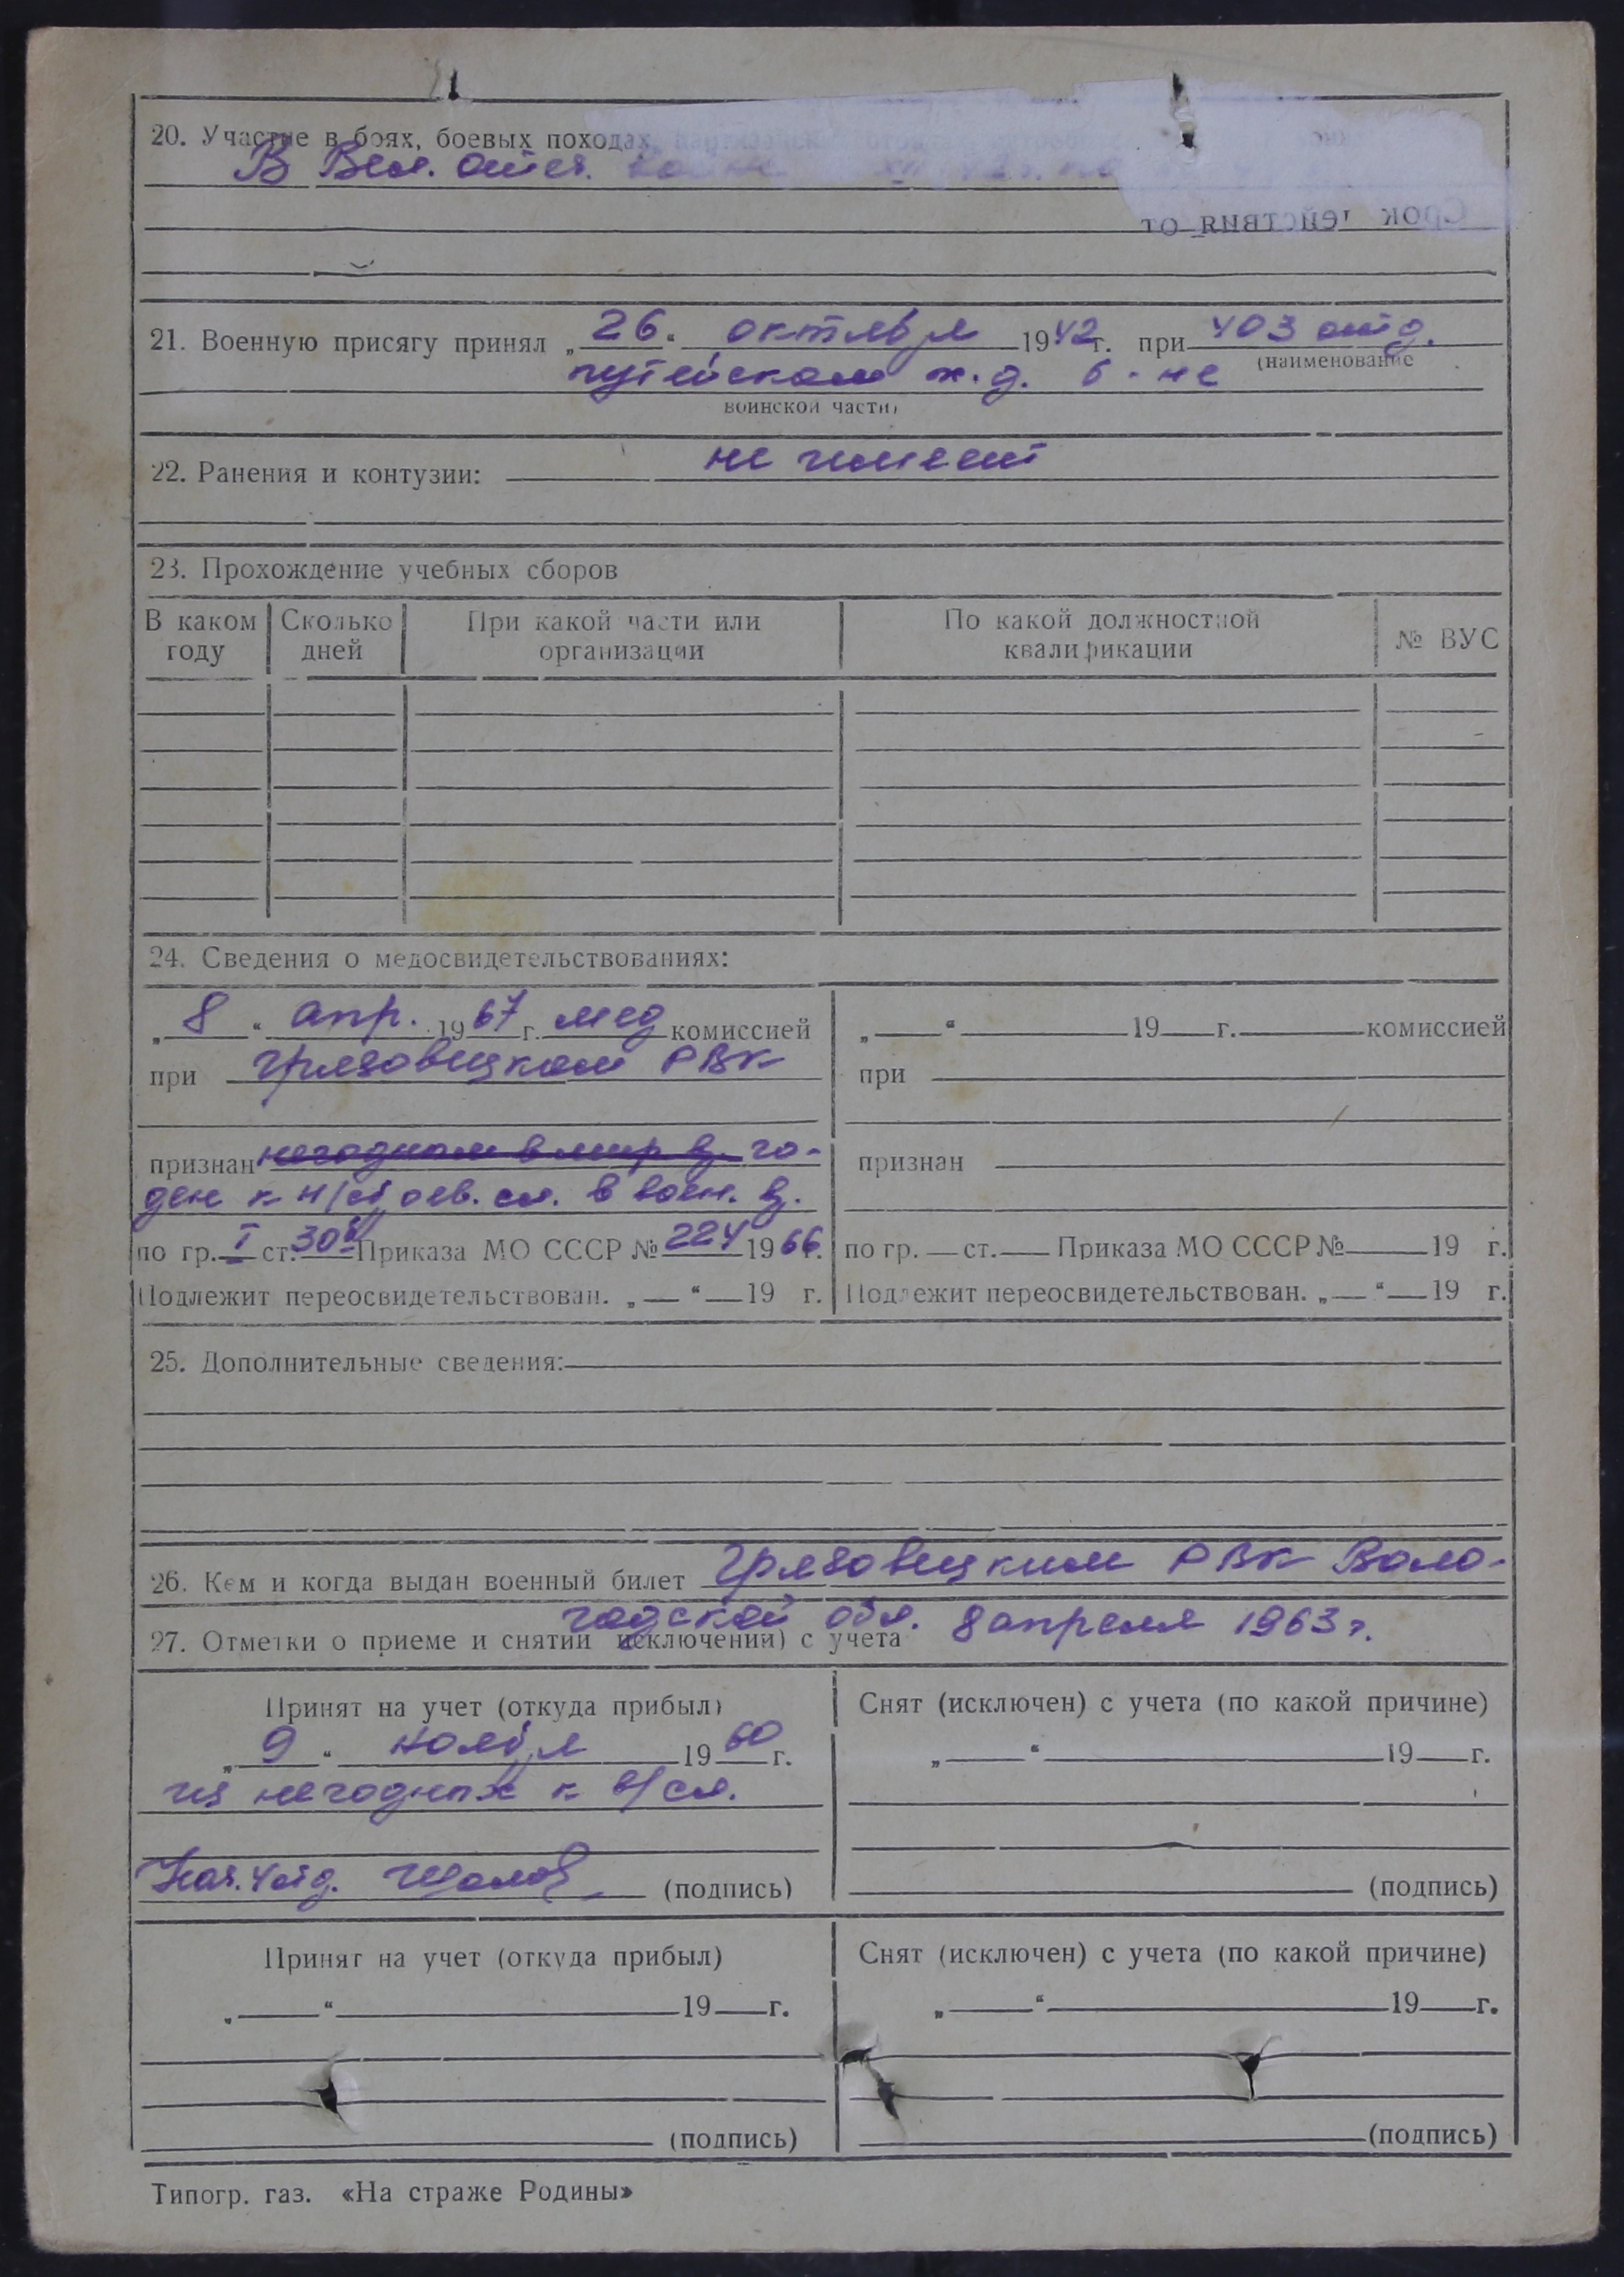 20. Участие в боях, боевых походах,
В Вел. отеч. войне
Срок действия от
21. Военную присягу принял „26“ октября 1942г. при 403 отд.
(наименование
путейском ж.д. б-не
воинской части)
22. Ранения и контузии: не имеет
23. Прохождение учебных сборов
В каком году | Сколько дней | При какой части или организации | По какой должностной квалификации | № ВУС
24. Сведения о медосвидетельствованиях:
„8“ апр. 1967 г. мед комиссией
при Грязовецком РВК
признан негодным в мир. в. го-
ден к н/строев. сл. в воен. в.
по гр. I ст. 30б Приказа МО СССР № 224 1966г.
Подлежит переосвидетельствован. „ “ 19 г.
„ “ 19 г. комиссией
при
признан
по гр. — ст. Приказа МО СССР № 19 г.
Подлежит переосвидетельствован. „ “ 19 г.
25. Дополнительные сведения:
26. Кем и когда выдан военный билет Грязовецким РВК Воло-
годской обл. 8 апреля 1963 г.
27. Отметки о приеме и снятии исключении) с учета
Принят на учет (откуда прибыл)
„9“ ноября 1960 г.
из негодных к в/сл.
Нач. 4 отд. (подпись)
Снят (исключен) с учета (по какой причине)
„ “ 19 г.
(подпись)
Принят на учет (откуда прибыл)
„ “ 19 г.
(подпись)
Снят (исключен) с учета (по какой причине)
„ “ 19 г.
(подпись)
Типогр. газ. «На страже Родины»